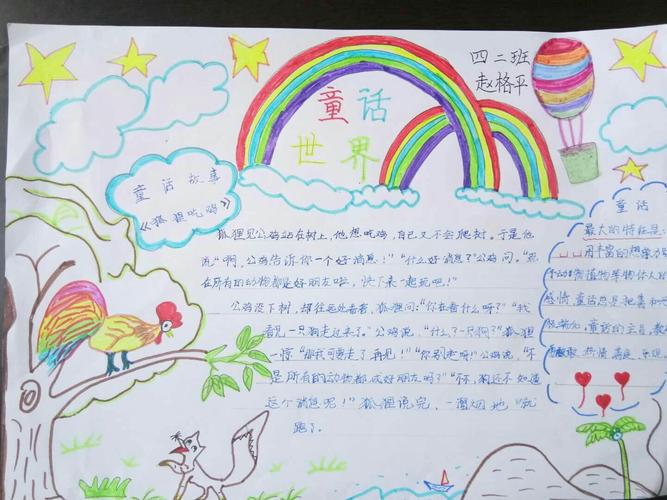 四二班
赵格平
童话
世界
童话故事
《狐狸吃鸡》
狐狸见公鸡站在树上，他想吃鸡，自己又不会爬树。于是他
说“啊，公鸡告诉你一个好消息！”“什么好消息？”公鸡问。“现
在所有的动物都是好朋友啦，快下来一起玩吧！”
公鸡没下树，却往远处看着，狐狸问：“你在看什么呀？”“我
看见一只狗走过来了。”公鸡说，“什么？一只狗？”狐狸
一惊“那我可要走了再见！”“你别走呀！”公鸡说，“不
是所有的动物都成好朋友吗？”“不，狗还不知道
这个消息呢！”狐狸说完，一溜烟地“就
跑了。
童话
最大的特征是：
用丰富的想象力
童话总是把真和